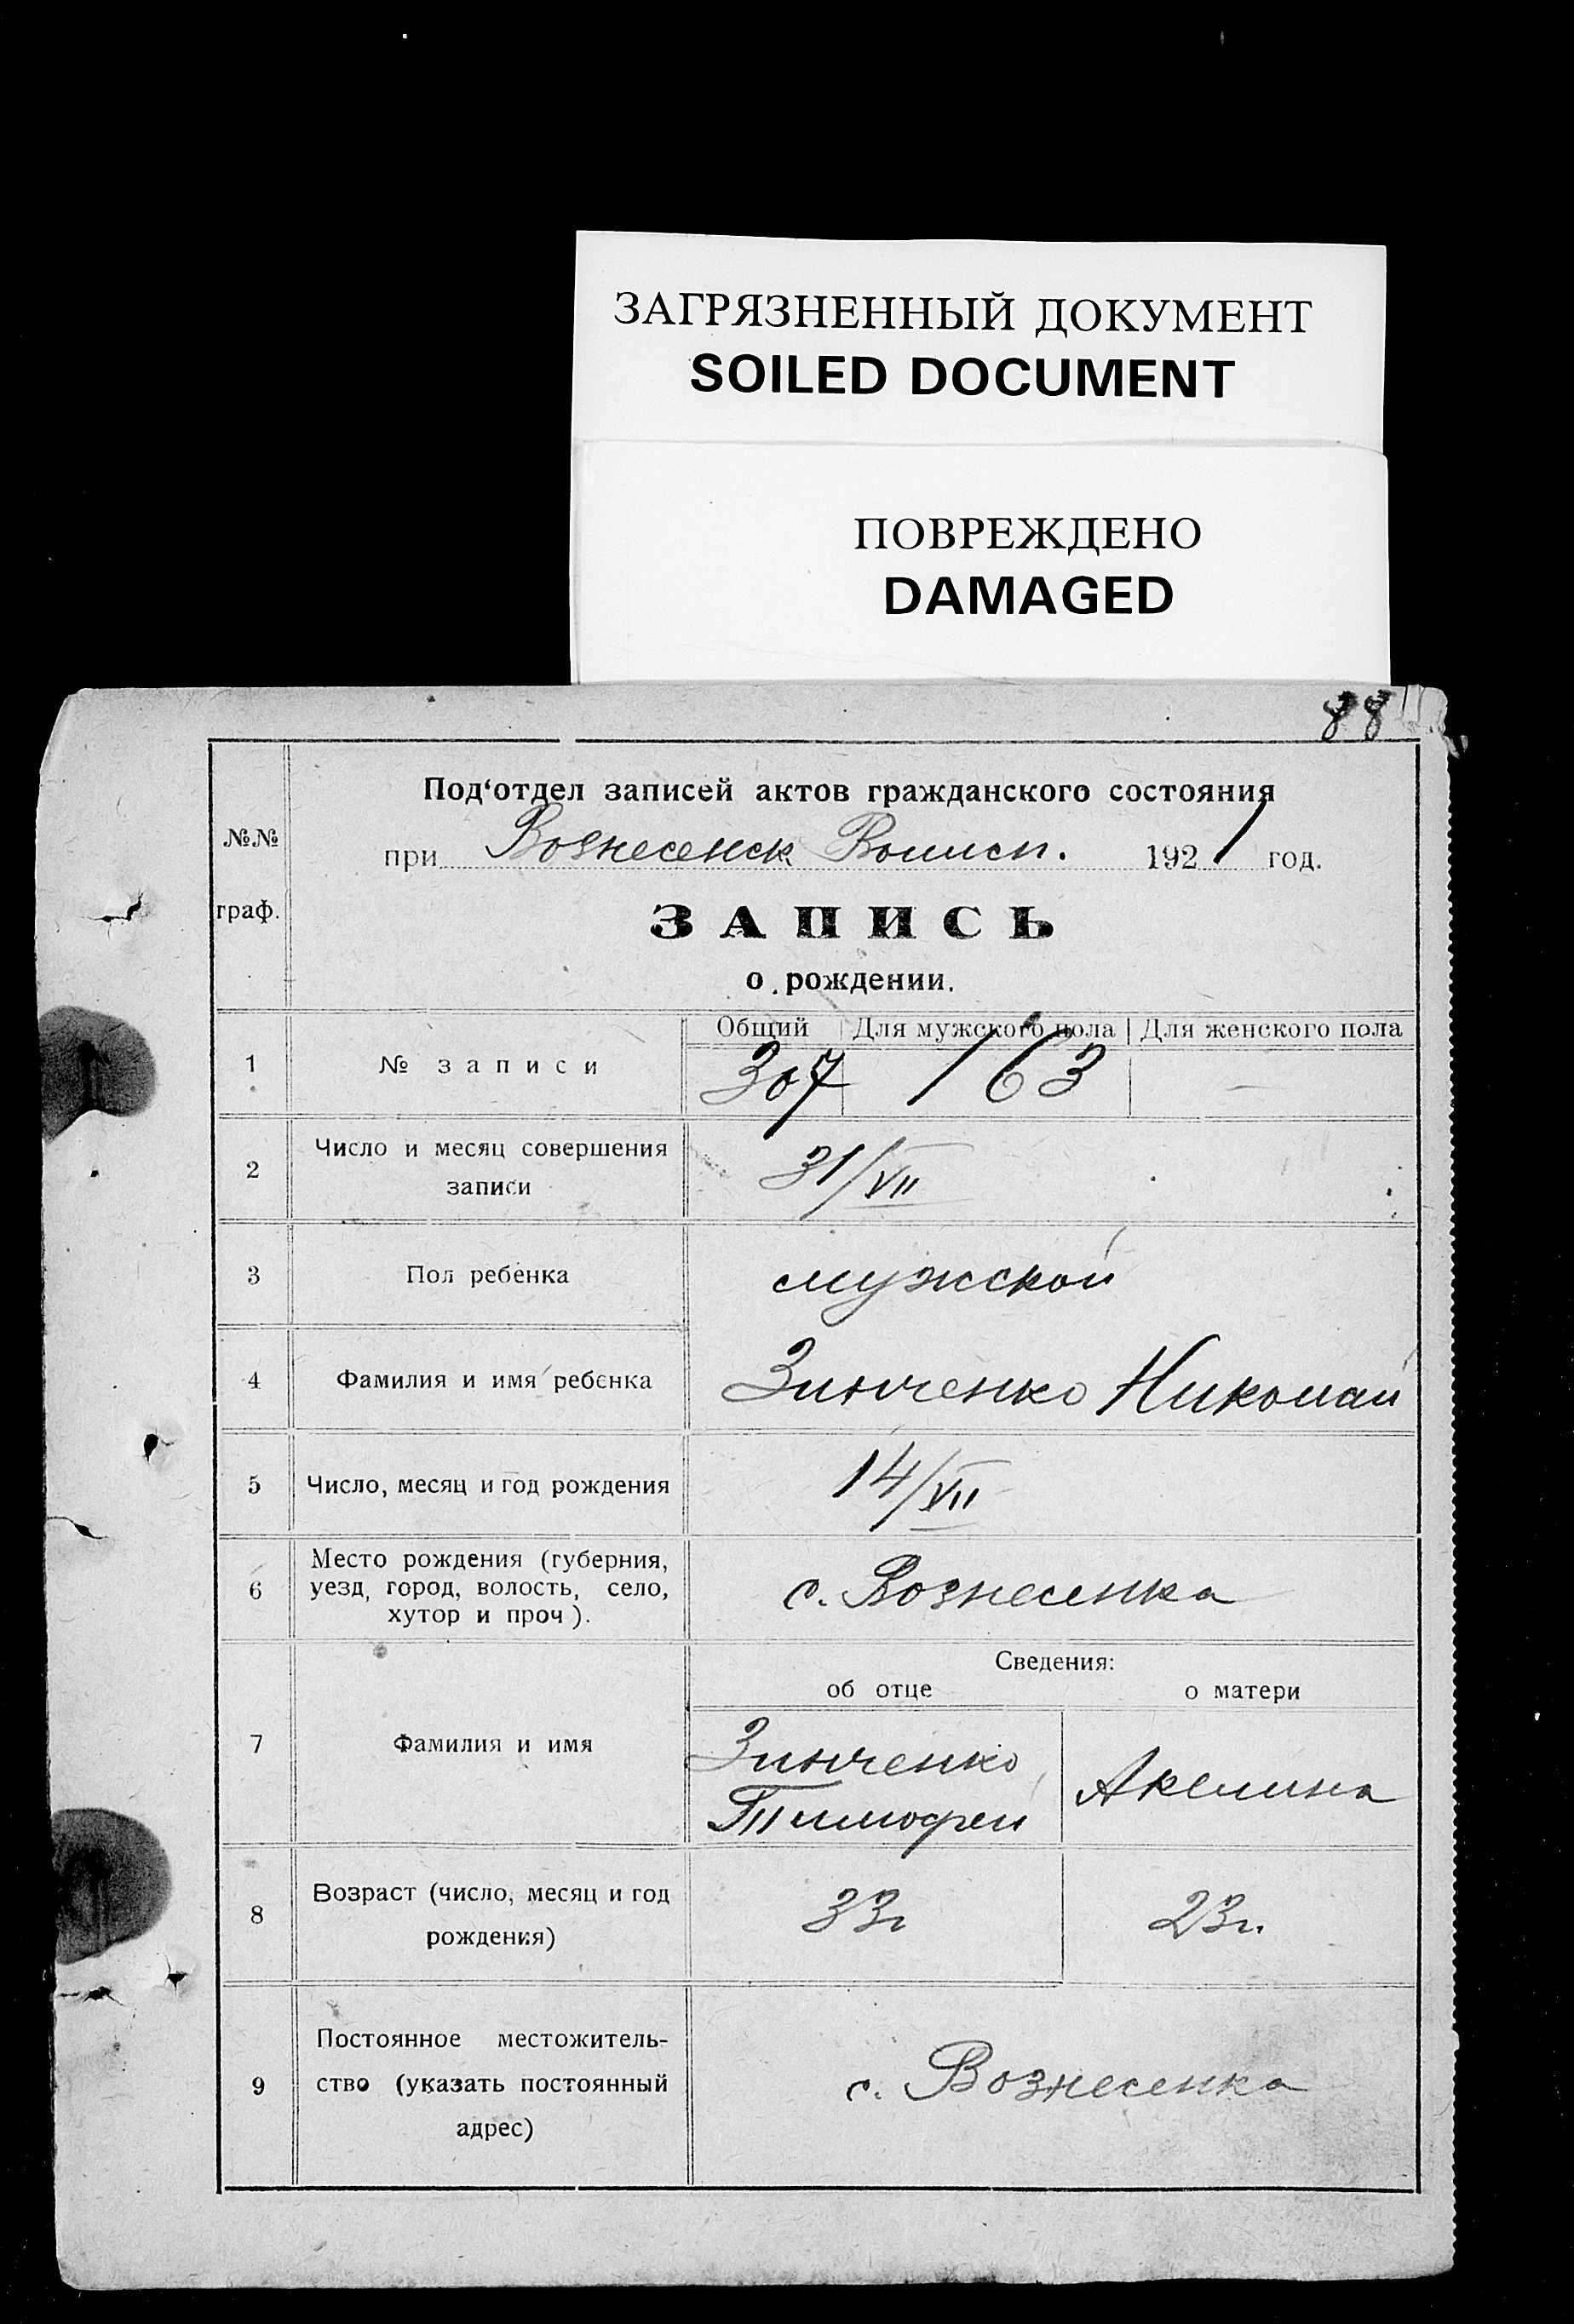 ЗАГРЯЗНЕННЫЙ ДОКУМЕНТ
SOILED DOCUMENT
ПОВРЕЖДЕНО
DAMAGED
88
№№
граф.
Под‘отдел записей актов гражданского состояния
при Вознесенск Волисп. 1921 год.
ЗАПИСЬ
о рождении.
Общий Для мужского пола Для женского пола
1 № записи 307 163 —
2 Число и месяц совершения
записи
31/VII
3 Пол ребенка мужской
4 Фамилия и имя ребенка Зинченко Николай
5 Число, месяц и год рождения 14/VII
6 Место рождения (губерния,
уезд, город, волость, село,
хутор и проч).
с. Вознесенка
Сведения:
об отце о матери
7 Фамилия и имя
Зинченко
Тимофей
Акелина
8 Возраст (число, месяц и год
рождения)
33г 23г.
9 Постоянное местожитель-
ство (указать постоянный
адрес)
с. Вознесенка